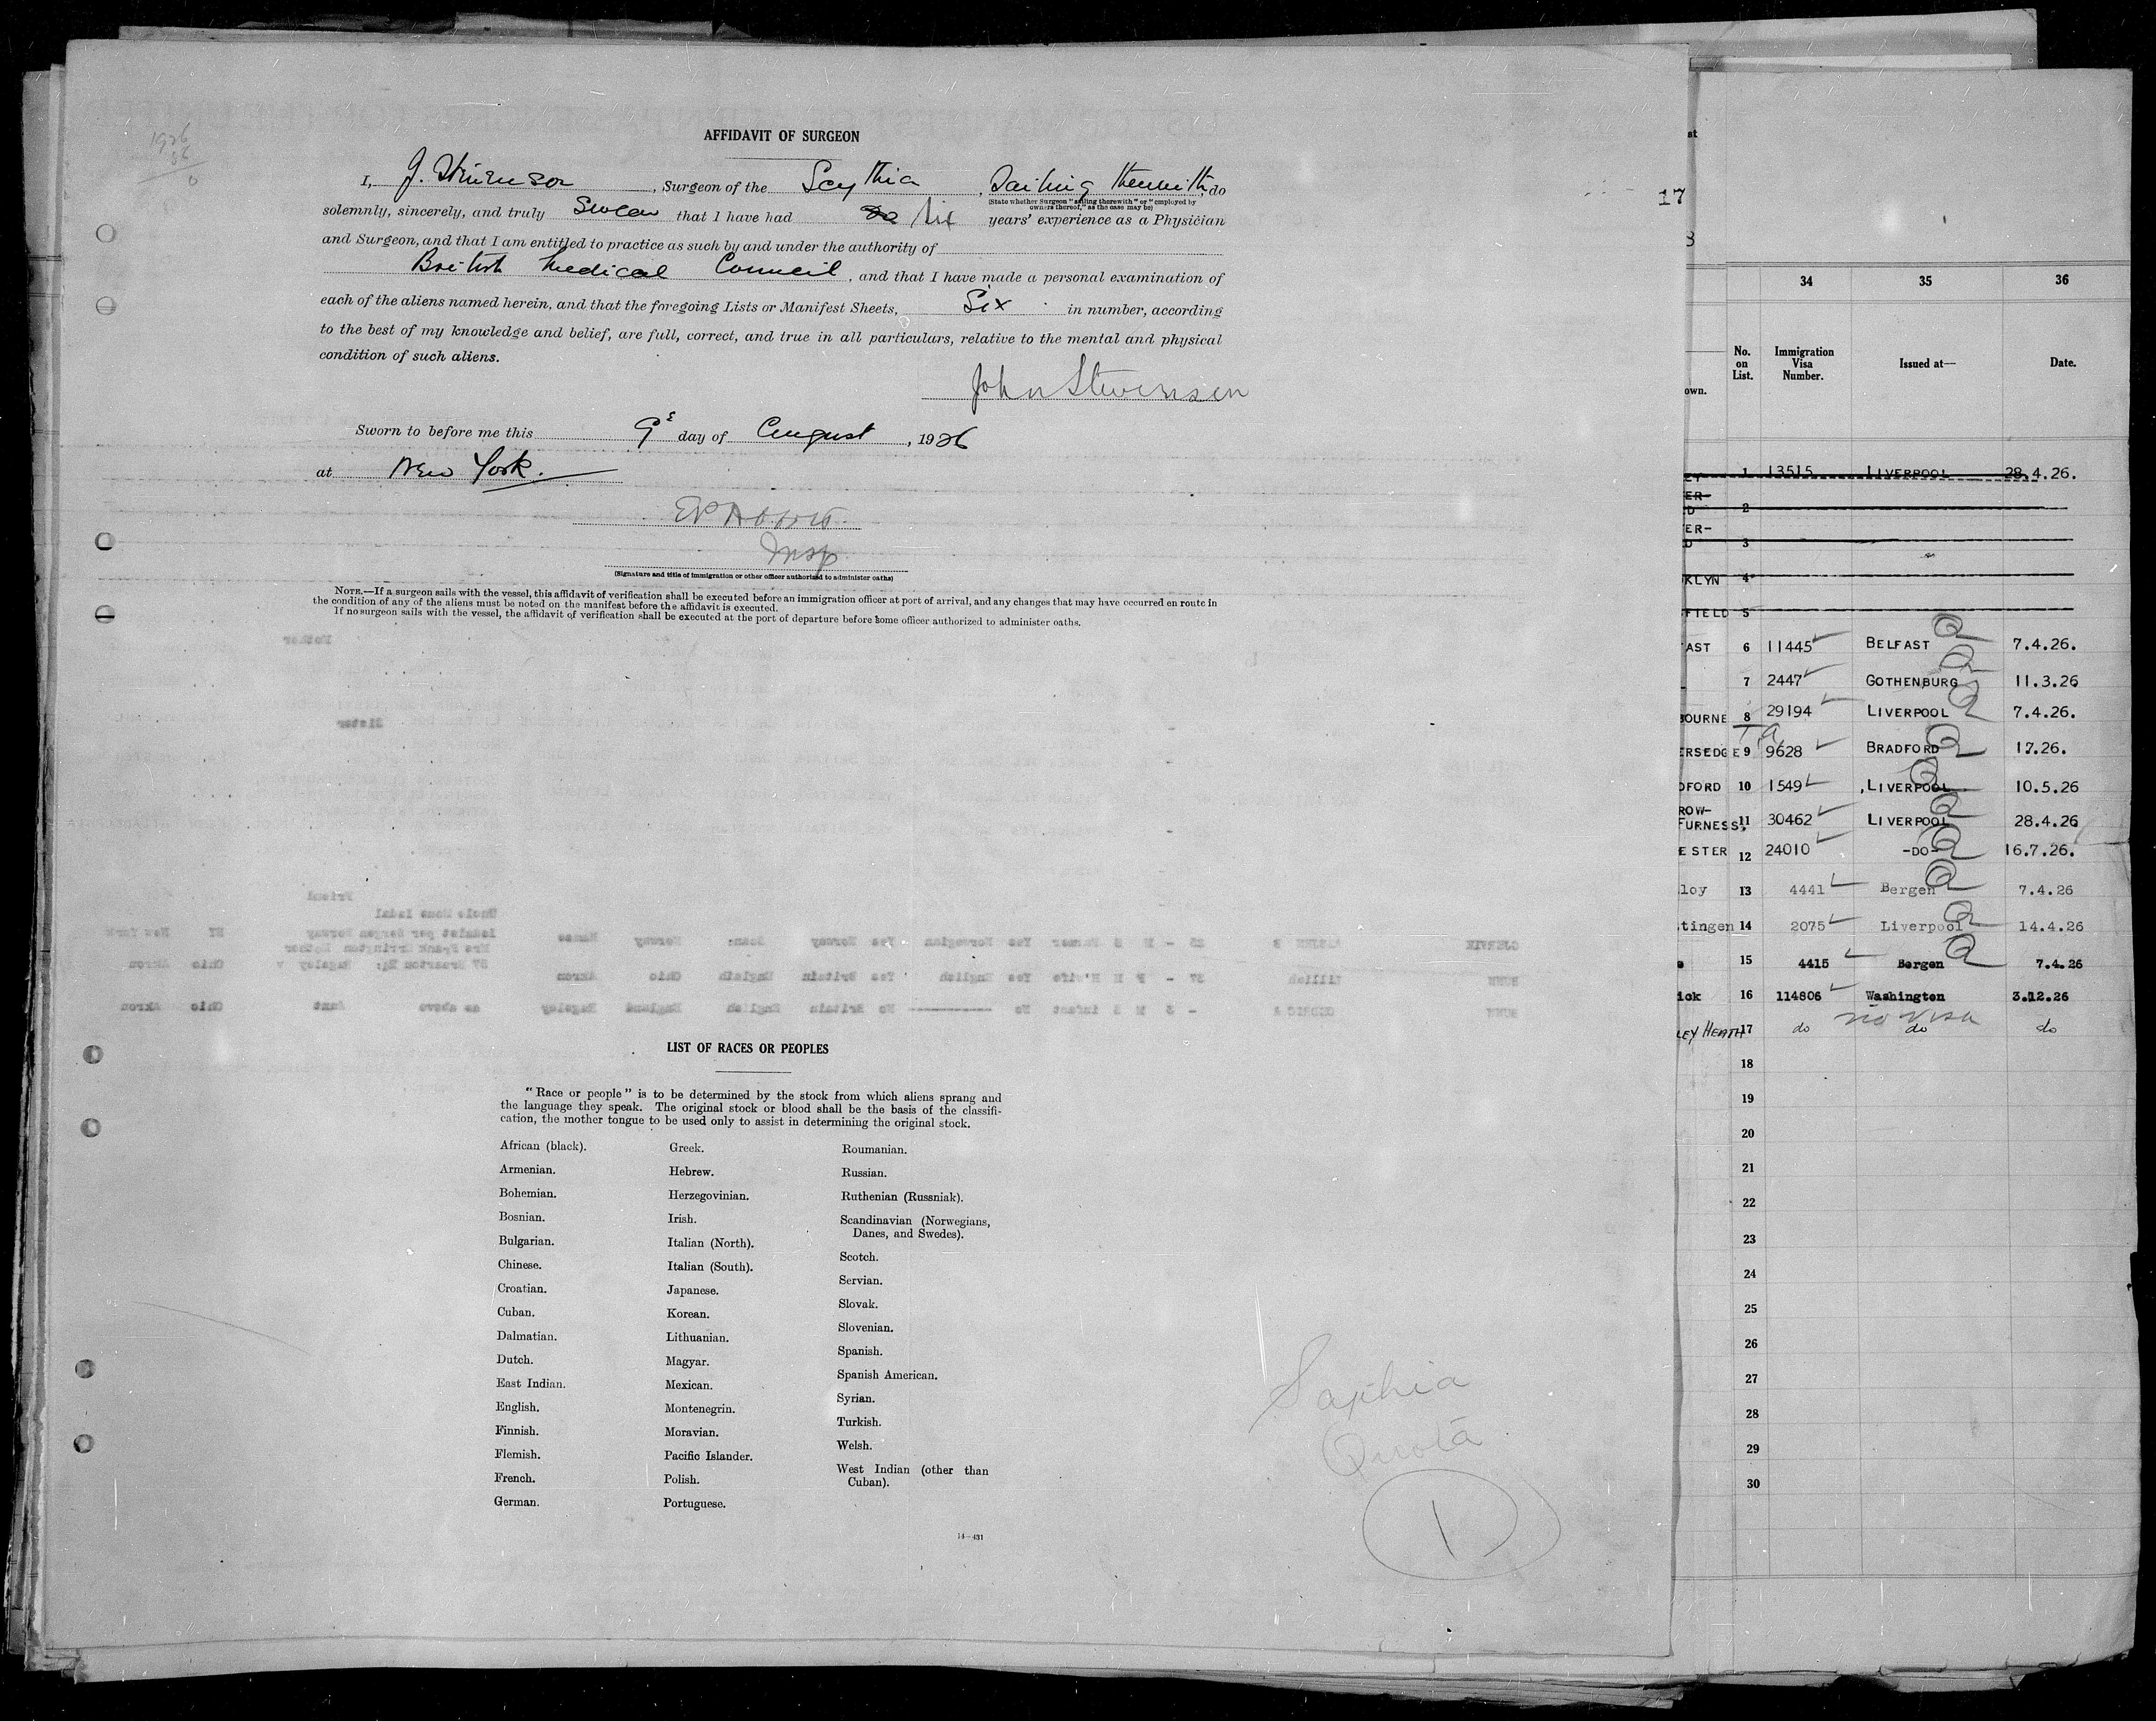 1926
AFFIDAVIT OF SURGEON
I, J. Stevenson, Surgeon of the Scythia, Sailing therewith, do
(State whether Surgeon "sailing therewith" or "employed by
owners thereof," as the case may be)
solemnly, sincerely, and truly Swear that I have had six years' experience as a Physician
and Surgeon, and that I am entitled to practice as such by and under the authority of
British Medical Council, and that I have made a personal examination of
each of the aliens named herein, and that the foregoing Lists or Manifest Sheets, Six in number, according
to the best of my knowledge and belief, are full, correct, and true in all particulars, relative to the mental and physical
condition of such aliens.
John Stevenson
Sworn to before me this 9 day of August, 1926
at New York.
Insp
(Signature and title of immigration or other officer authorized to administer oaths)
NOTE.—If a surgeon sails with the vessel, this affidavit of verification shall be executed before an immigration officer at port of arrival, and any changes that may have occurred en route in
the condition of any of the aliens must be noted on the manifest before the affidavit is executed.
If no surgeon sails with the vessel, the affidavit of verification shall be executed at the port of departure before some officer authorized to administer oaths.
LIST OF RACES OR PEOPLES
"Race or people" is to be determined by the stock from which aliens sprang and
the language they speak. The original stock or blood shall be the basis of the classifi-
cation, the mother tongue to be used only to assist in determining the original stock.
African (black).
Armenian.
Bohemian.
Bosnian.
Bulgarian.
Chinese.
Croatian.
Cuban.
Dalmatian.
Dutch.
East Indian.
English.
Finnish.
Flemish.
French.
German.
Greek.
Hebrew.
Herzegovinian.
Irish.
Italian (North).
Italian (South).
Japanese.
Korean.
Lithuanian.
Magyar.
Mexican.
Montenegrin.
Moravian.
Pacific Islander.
Polish.
Portuguese.
Roumanian.
Russian.
Ruthenian (Russniak).
Scandinavian (Norwegians,
Danes, and Swedes).
Scotch.
Servian.
Slovak.
Slovenian.
Spanish.
Spanish American.
Syrian.
Turkish.
Welsh.
West Indian (other than
Cuban).
14—431
Quota
1
17
34 35 36
own. No. on List. Immigration Visa Number. Issued at— Date.
1 13515 LIVERPOOL 28.4.26.
ER-
D 2
ER-
D 3
KLYN 4
FIELD 5
AST 6 11445 BELFAST Q 7.4.26.
7 2447 GOTHENBURG Q 11.3.26
BOURNE 8 29194 LIVERPOOL Q 7.4.26.
ERSEDGE 9 9628 BRADFORD Q 17.26.
DFORD 10 1549 LIVERPOOL Q 10.5.26
ROW-
FURNESS. 11 30462 LIVERPOOL Q 28.4.26
ESTER 12 24010 -DO- Q 16.7.26.
loy 13 4441 Bergen Q 7.4.26
tingen 14 2075 Liverpool Q 14.4.26
e 15 4415 Bergen Q 7.4.26
ick 16 114806 Washington 3.12.26
no visa
LEY HEATH 17 do do do
18
19
20
21
22
23
24
25
26
27
28
29
30